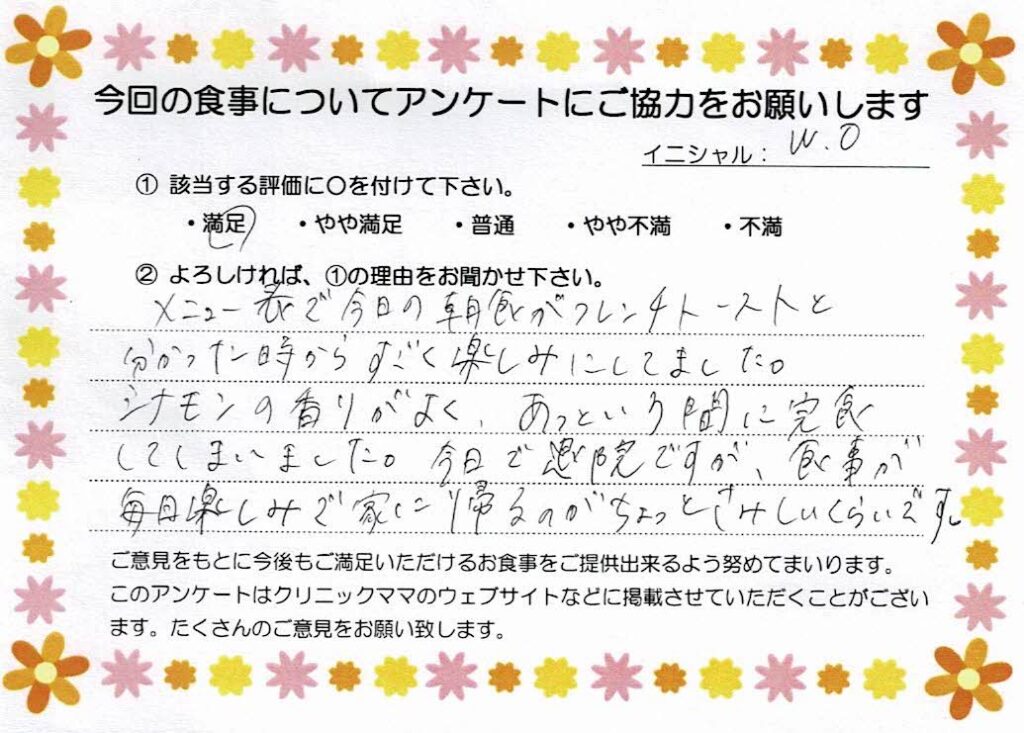 今回の食事についてアンケートにご協力をお願いします
イニシャル： W.O
① 該当する評価に〇を付けて下さい。
・満足 ・やや満足 ・普通 ・やや不満 ・不満
② よろしければ、①の理由をお聞かせ下さい。
メニュー表で今日の朝食がフレンチトーストと
分かった時からすごく楽しみにしてました。
シナモンの香りがよく、あっという間に完食
してしまいました。今日で退院ですが、食事が
毎日楽しみで家に帰るのがちょっとさみしいくらいです。
ご意見をもとに今後もご満足いただけるお食事をご提供出来るよう努めてまいります。
このアンケートはクリニックママのウェブサイトなどに掲載させていただくことがござい
ます。たくさんのご意見をお願い致します。